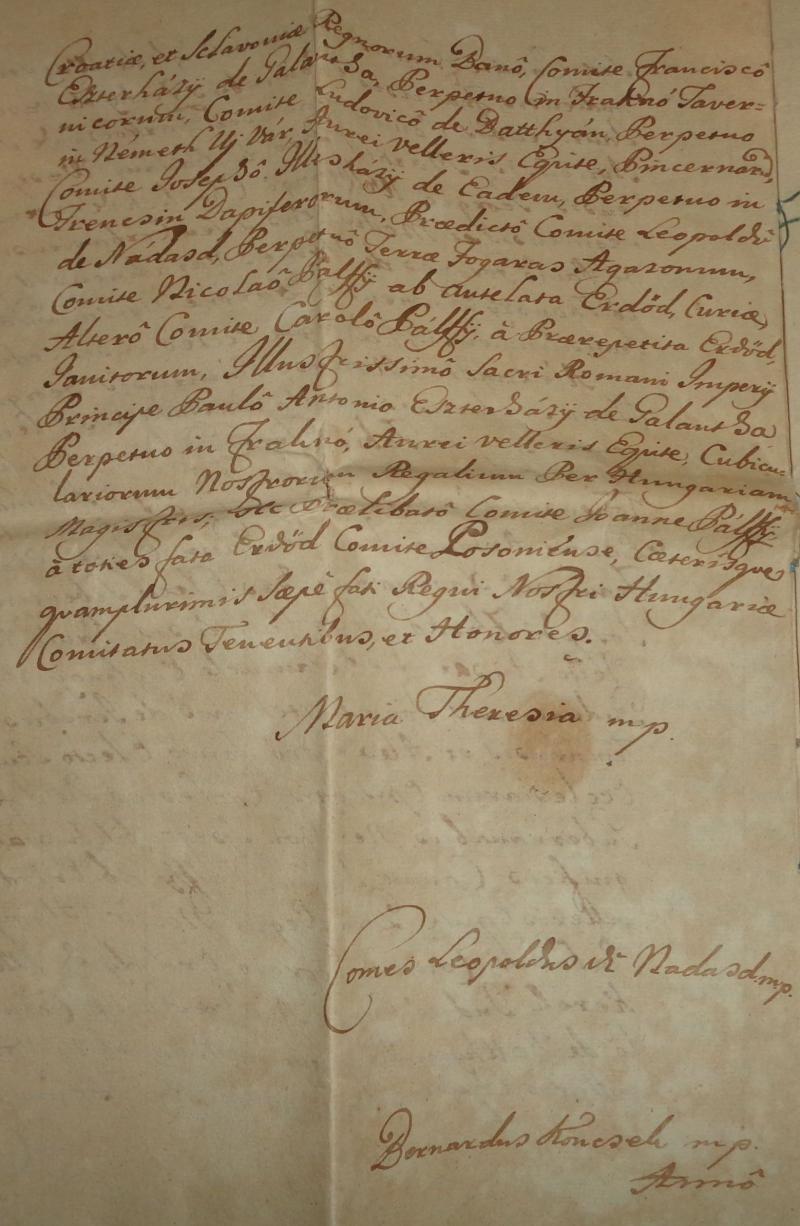 Croatiæ, et Sclavoniæ Regnorum Banô, Comite Franciscô
Eszterházÿ de Galantha, Perpetuo in Fraknó Taver=
nicorum, Comite Ludovicô de Batthÿán, Perpetuo
in Németh Uj Vár, Aurei velleris Equite, Pincernarũ,
Comite Josephô Illesházÿ de Eadem, Perpetuo in
Trencsin Dapiferorum, Prædictô Comite Leopoldô
de Nádasd, Perpetuô Terræ Fogaras Agazonum,
Comite Nicolaô Pálffÿ ab autelata Erdöd, Curiæ,
Alterô Comite Carolô Pálffÿ, à Prærepetita Erdöd,
Janitorum, Illustrissimô Sacri Romani Imperÿ
Principe Paulô Antonio Eszterházÿ de Galantha
Perpetuo in Fraknó, Aurei velleris Equite, Cubicu=
lariorum Nostrorum Regalium Per Hungariam
Magistris, Prælibatô Comite Joanne Pálffÿ
à toties fata Erdöd Comite Posoniense, Cæterisque
quamplurimis sæpè fati Regni Nostri Hungariæ
Comitatus Tenentibus, et Honores.
Maria Theresia mp.
Comes Leopoldus de Nadasd mp.
Bernardus mp.
Annô